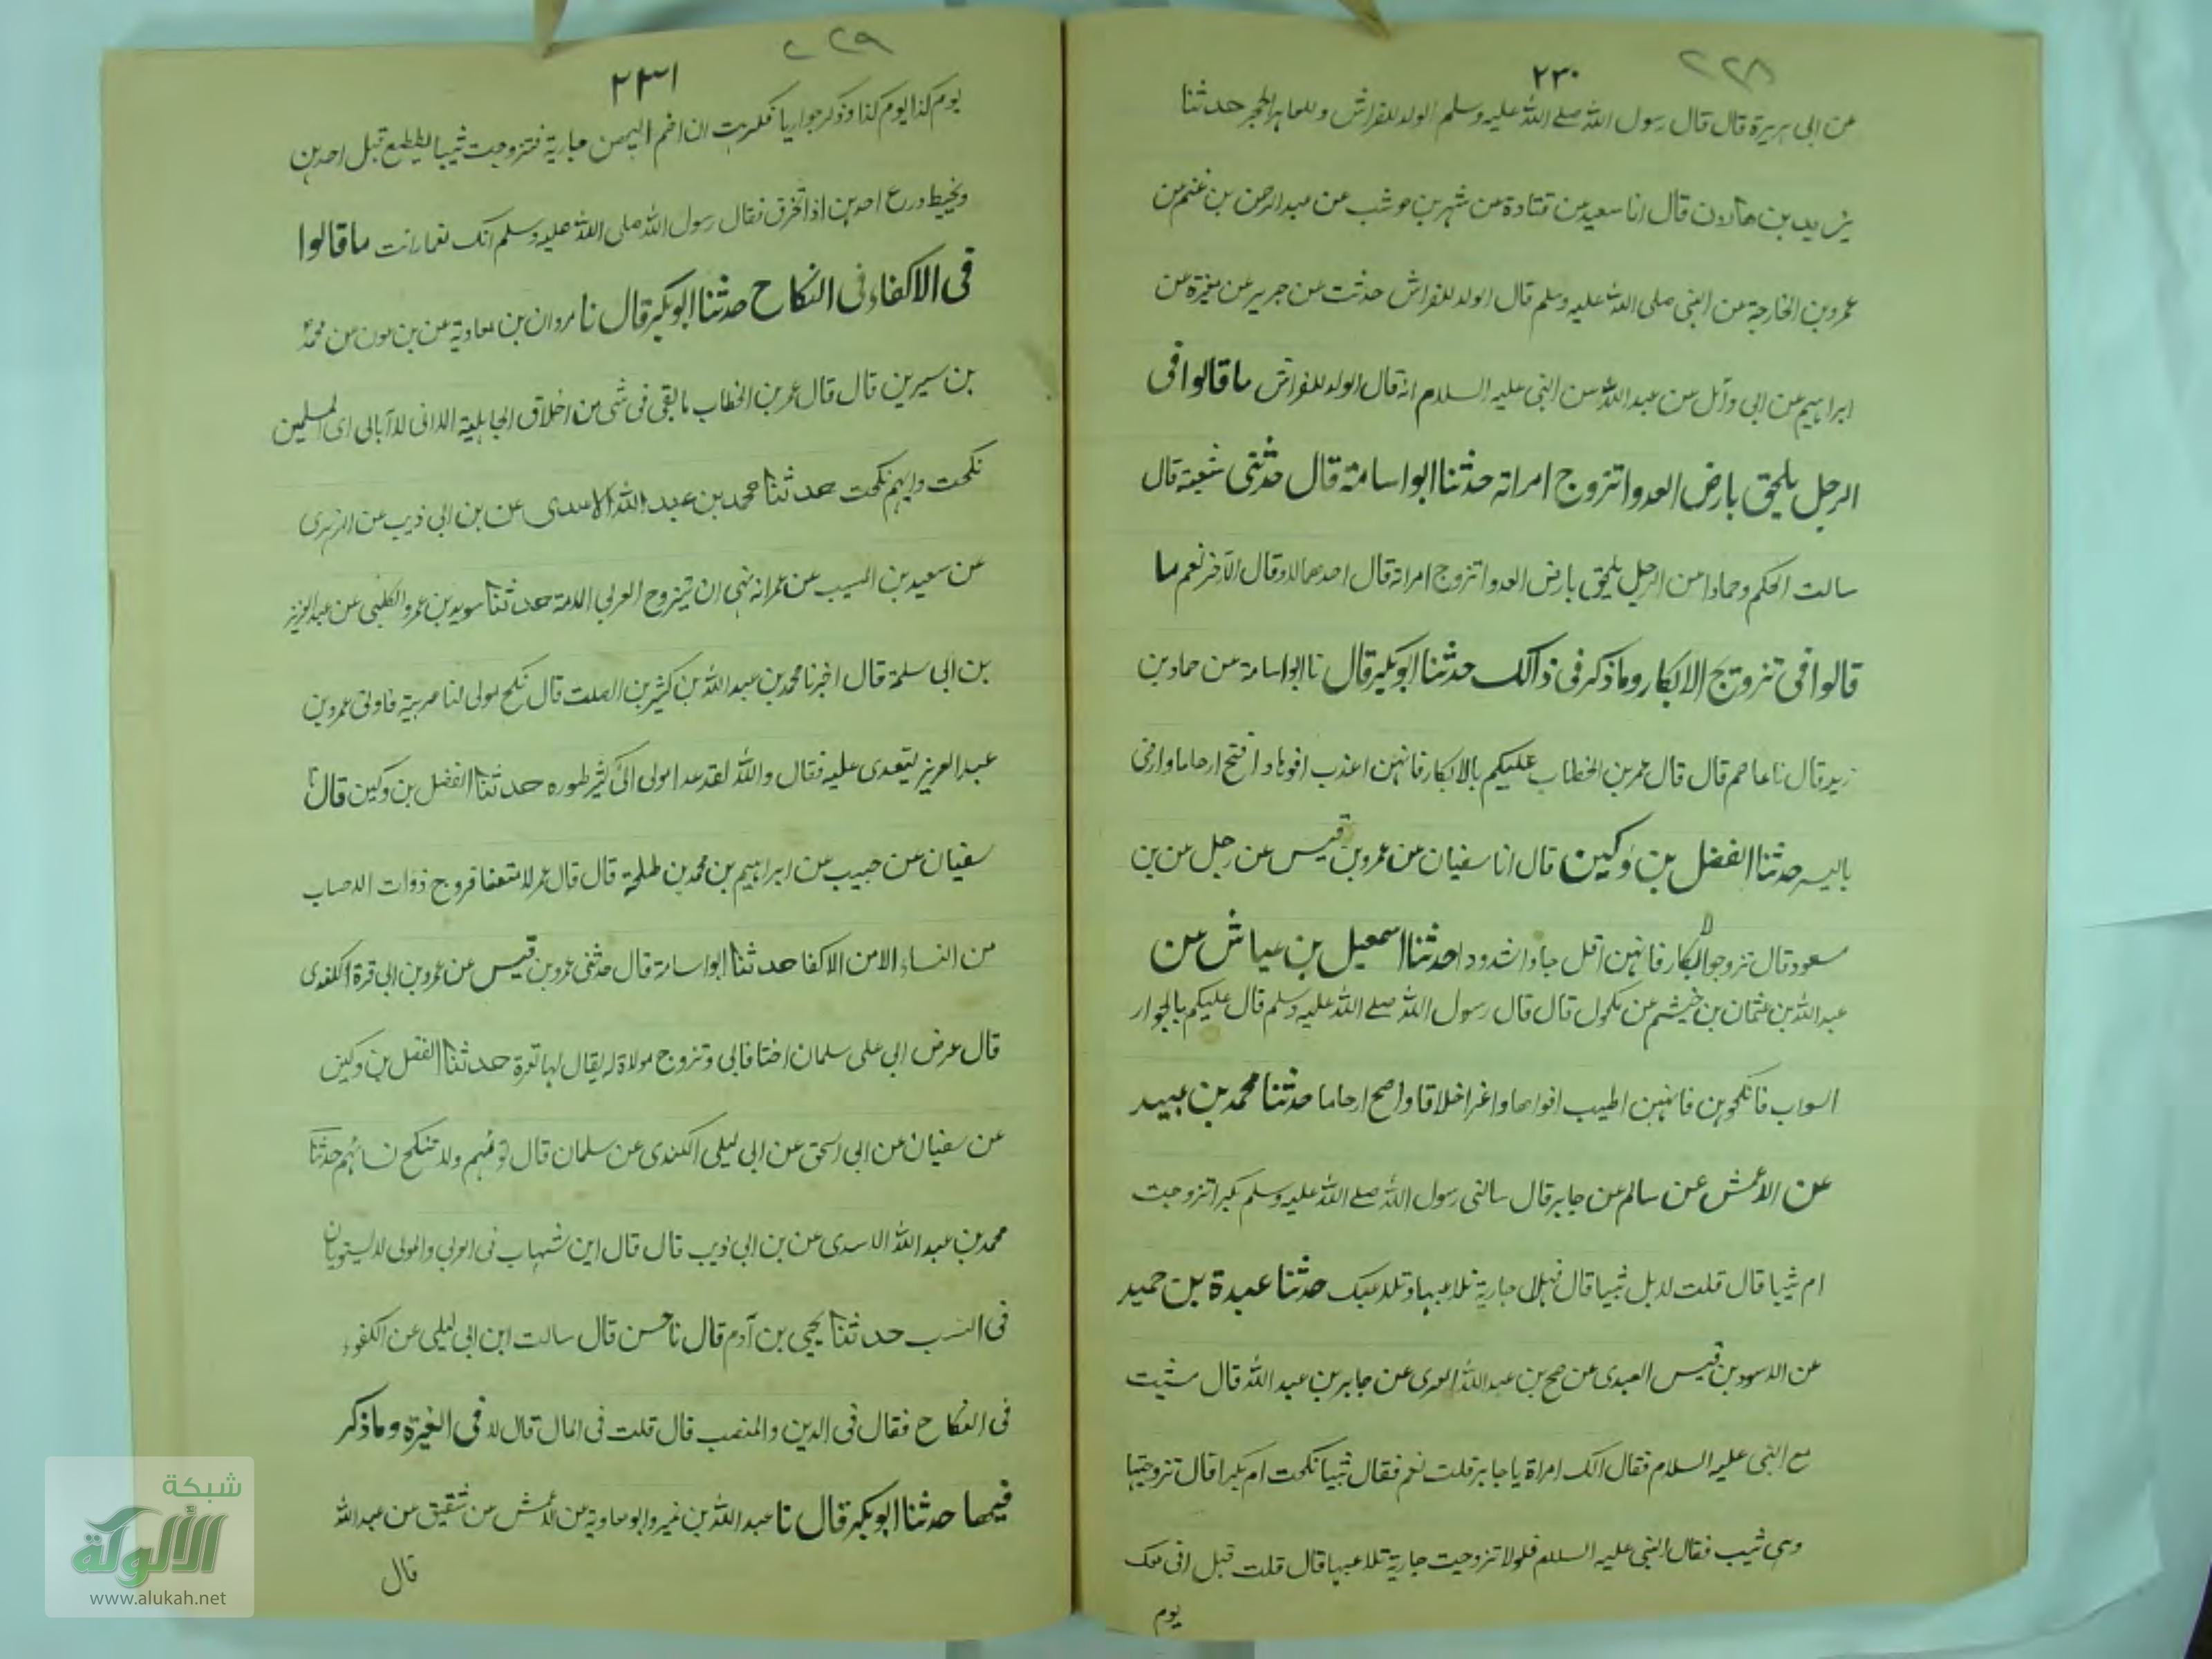 ٢٢٨
٢٣٠
عن ابى هريرة قال قال رسول الله صلے الله عليه وسلم الولد للفراش وللعاهر الحجر حدثنا
يزيد بن هارون قال انا سعيد عن قتادة عن شهر بن حوشب عن عبد الرحمن بن غنم عن
عمرو بن الخارجة عن النبى صلى الله عليه وسلم قال الولد للفراش حدثت عن جرير عن مغيرة عن
ابراهيم عن ابى وائل عن عبد الله عن النبى عليه السلام انه قال الولد للفراش ما قالوا فى
الرجل يلحق بارض العدو اتتزوج امراته حدثنا ابو اسامة قال حدثنى شعبة قال
سالت الحكم وحمادا عن الرجل يلحق بارض العدو اتتزوج امراته قال احدهما لا وقال الآخر نعم ما
قالوا فى تزويج الابكار وما ذكر فى ذالك حدثنا ابو بكر قال نا ابو اسامة عن حماد بن
زيد قال نا عاصم قال قال عمر بن الخطاب عليكم بالابكار فانهن اعذب افواها وافتح ارحاما وارضى
باليسر حدثنا الفضل بن دكين قال انا سفيان عن عمرو بن قيس عن رجل عن بن
مسعود قال تزوجوا الابكار فانهن اقل حبا واشد ودا حدثنا اسمعيل بن عياش عن
عبد الله بن عثمان بن خيثم عن مكحول قال قال رسول الله صلے الله عليه وسلم قال عليكم بالجوار
السواب فانكحوهن فانهن اطيب افواها واغر اخلاقا واصح ارحاما حدثنا محمد بن عبيد
عن الاعمش عن سالم عن جابر قال سالنى رسول الله صلے الله عليه وسلم بكرا تزوجت
ام ثيبا قال قلت لا بل ثيبا قال فهلا جارية تلاعبها وتلاعبك حدثنا عبدة بن حميد
عن الاسود بن قيس العبدى عن صح بن عبد الله العدى عن جابر بن عبد الله قال مشيت
مع النبى عليه السلام فقال الك امراة يا جابر قلت نعم فقال ثيبا نكحت ام بكرا قال تزوجتها
وهى ثيب فقال النبى عليه السلام فلولا تزوجت جارية تلاعبها قال قلت قبل ابى معك
يوم
٢٢٩
٢٣١
يوم كذا يوم كذا وذكر جواريا فكرهت ان اضم اليهن جارية فتزوجت ثيبا تقطع قبل احدهن
وتخيط درع احدهن اذا تخرق فقال رسول الله صلى الله عليه وسلم انك نعما رات ما قالوا
فى الاكفاء فى النكاح حدثنا ابو بكر قال نا مروان بن معاوية عن بن عون عن محمد
بن سيرين قال قال عمر بن الخطاب ما بقى فى شى من اخلاق الجاهلية الا انى لا ابالى اى المسلمين
نكحت وايهم نكحت حدثنا محمد بن عبد الله الاسدى عن بن ابى ذيب عن الزهرى
عن سعيد بن المسيب عن عمر انه نهى ان يتزوج العربى الامة حدثنا سويد بن عمرو الكلبى عن عبد العزيز
بن ابى سلمة قال اخبرنا محمد بن عبد الله بن كثير بن الصلت قال نكح مولى لنا عربية فاوتى عمر بن
عبد العزيز ليتعدى عليه فقال والله لقد عدا مولى ال كثير طوره حدثنا الفضل بن دكين قال نا
سفيان عن حبيب عن ابراهيم بن محمد بن طلحة قال قال عمر لا منعنا فروج ذوات الاحساب
من النساء الا من الاكفا حدثنا ابو اسامة قال حدثنى عمرو بن قيس عن عمرو بن ابى قرة الكندى
قال عرض ابى على سلمان اختا فابى وتزوج مولاة له يقال لها بقرة حدثنا الفضل بن دكين
عن سفيان عن ابى اسحق عن ابى ليلى الكندى عن سلمان قال لا نؤمهم ولا تنكح نسائهم حدثنا
محمد بن عبد الله الاسدى عن بن ابى ذيب قال قال ابن شهاب فى العربى والمولى لا يستويان
فى النسب حدثنا يحيى بن آدم قال نا حسن قال سالت ابن ابى ليلى عن الكفوء
فى النكاح فقال فى الدين والمنصب قال قلت فى المال قال لا فى الغيرة وما ذكر
فيها حدثنا ابو بكر قال نا عبد الله بن نمير وابو معاوية عن الاعمش عن شقيق عن عبد الله
قال
شبكة
الألوكة
www.alukah.net